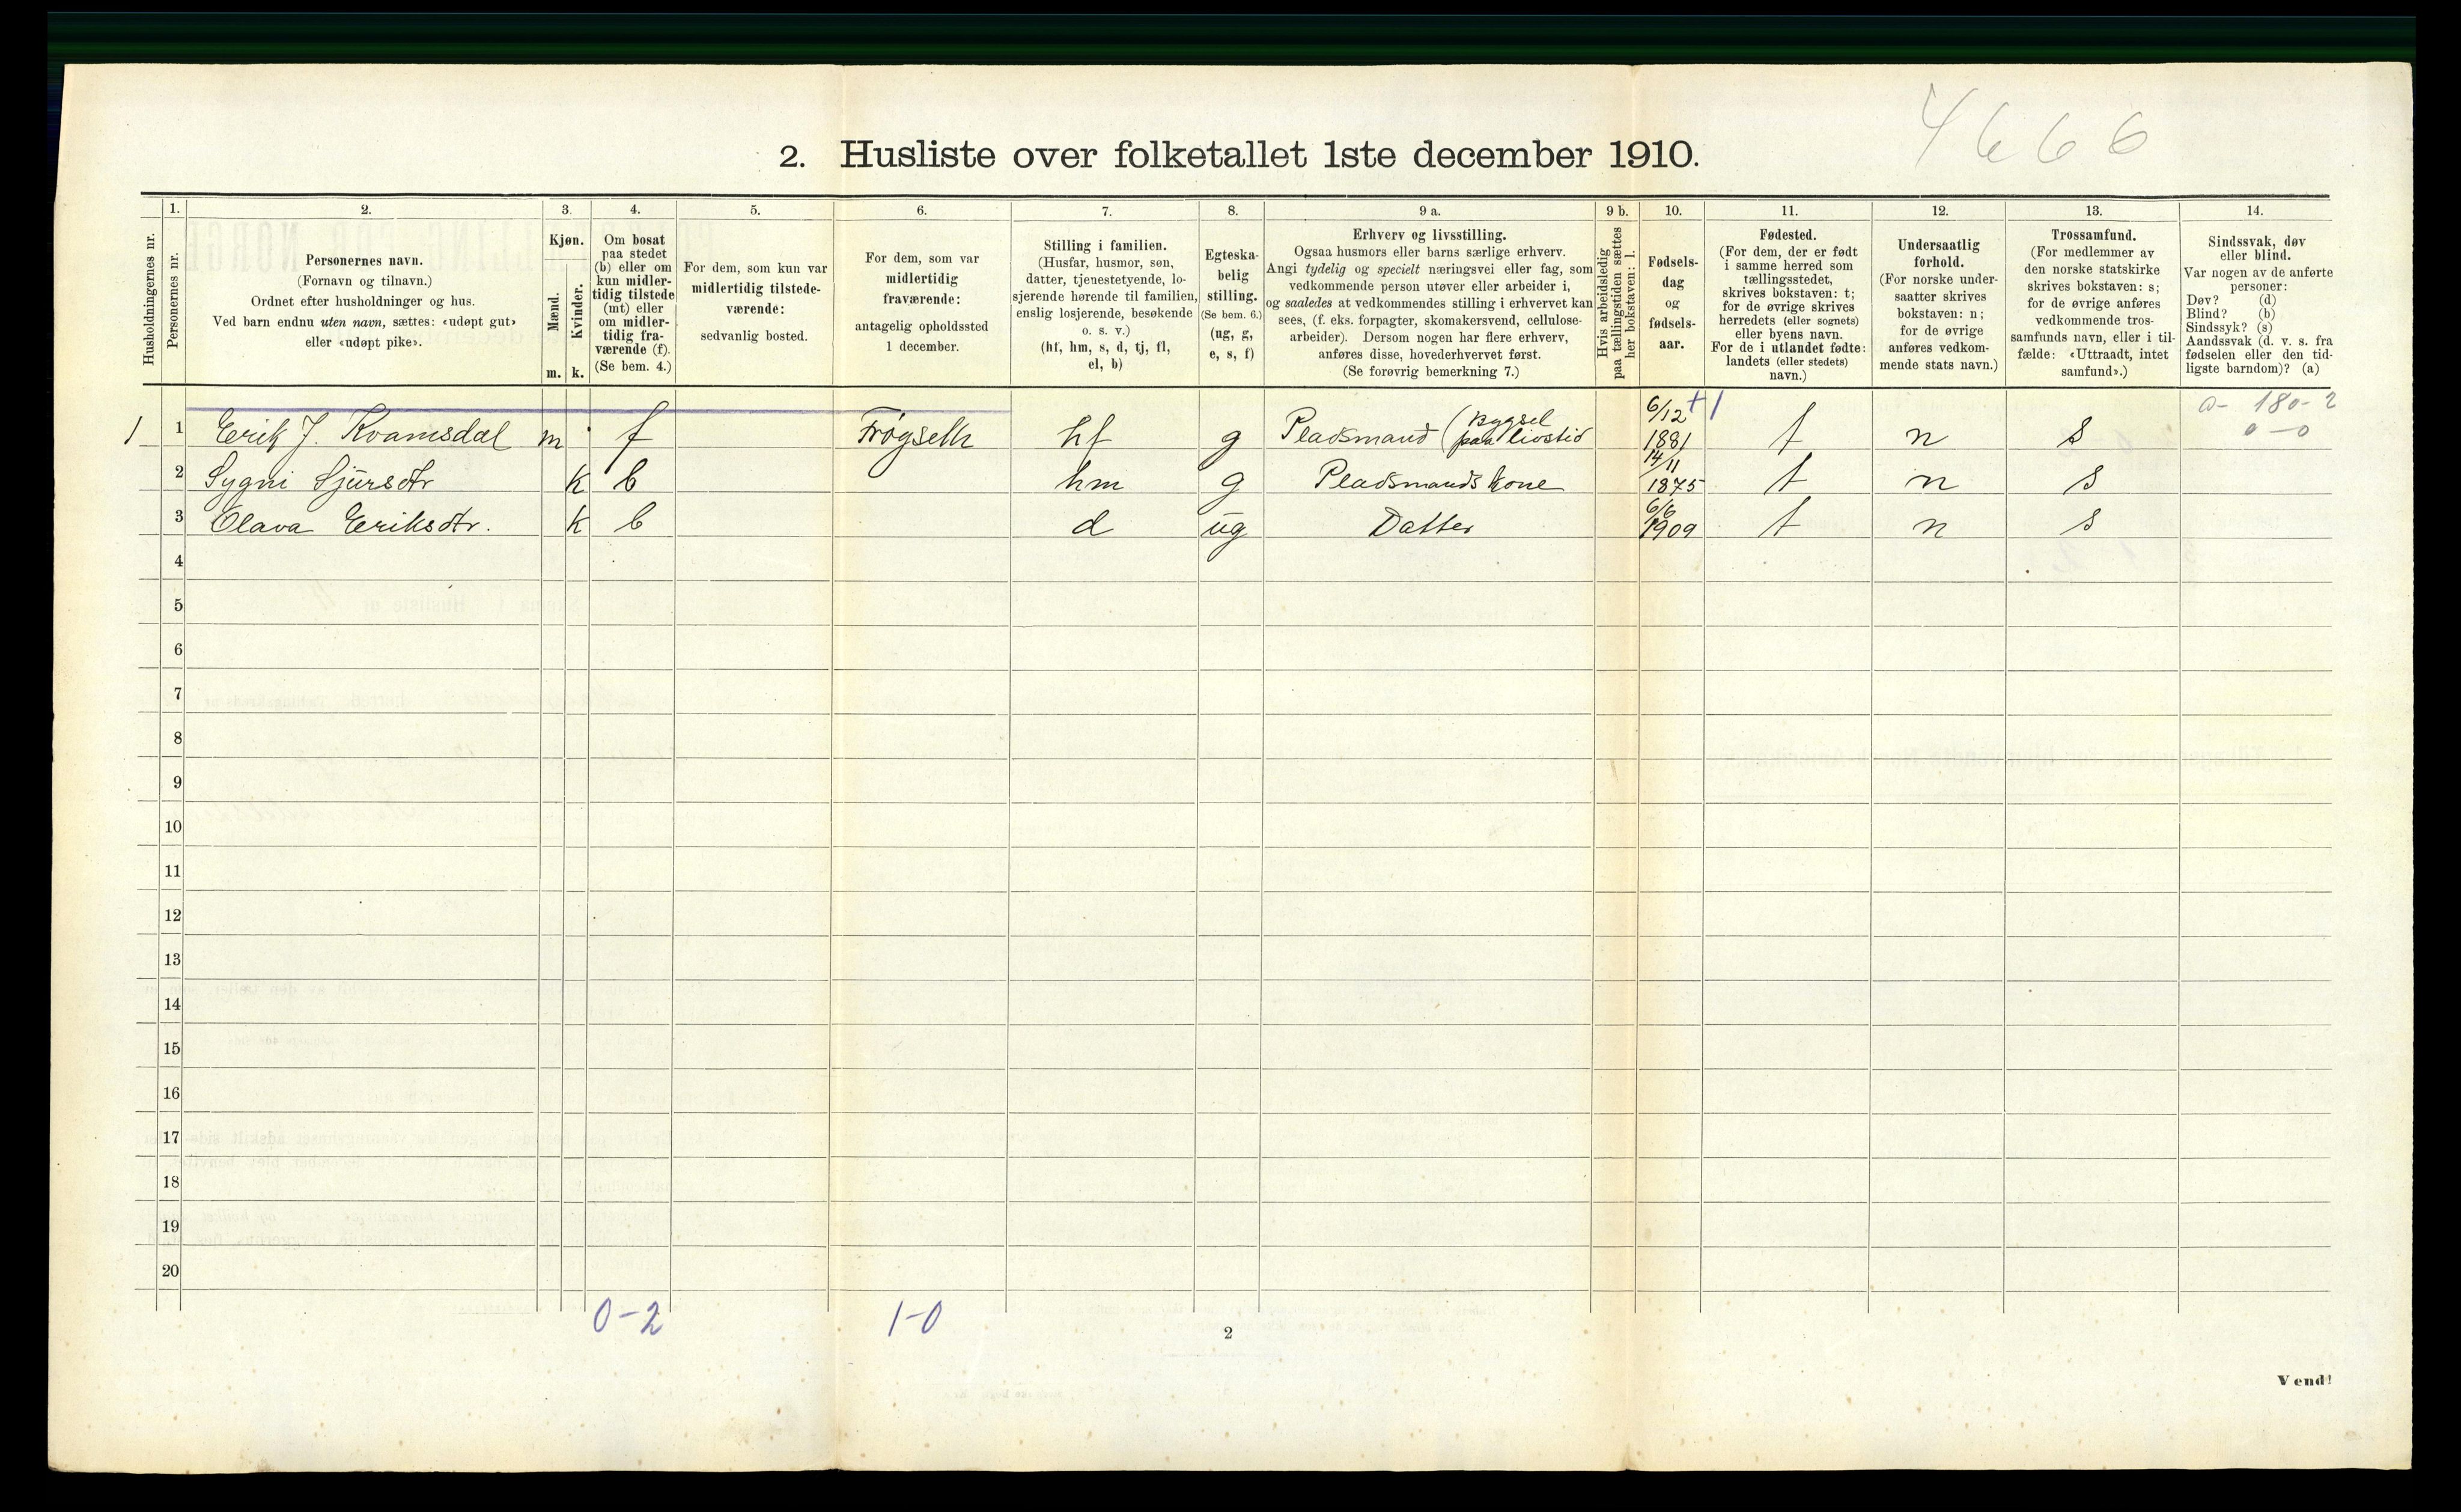 4666
2. Husliste over folketallet 1ste december 1910.
1. 2. 3. 4. 5. 6. 7. 8. 9 a. 9 b. 10. 11. 12. 13. 14.
Husholdningernes nr.
Personernes nr.
Personernes navn.
(Fornavn og tilnavn.)
Ordnet efter husholdninger og hus.
Ved barn endnu uten navn, sættes: «udøpt gut»
eller «udøpt pike».
Kjøn.
Mænd.
Kvinder.
m. k.
Om bosat
paa stedet
(b) eller om
kun midler-
tidig tilstede
(mt) eller
om midler-
tidig fra-
værende (f).
(Se bem. 4.)
For dem, som kun var
midlertidig tilstede-
værende:
sedvanlig bosted.
For dem, som var
midlertidig
fraværende:
antagelig opholdssted
1 december.
Stilling i familien.
(Husfar, husmor, søn,
datter, tjenestetyende, lo-
sjerende hørende til familien,
enslig losjerende, besøkende
o. s. v.)
(hf, hm, s, d, tj, fl,
el, b)
Egteska-
belig
stilling.
(Se bem. 6.)
(ug, g,
e, s, f)
Erhverv og livsstilling.
Ogsaa husmors eller barns særlige erhverv.
Angi tydelig og specielt næringsvei eller fag, som
vedkommende person utøver eller arbeider i,
og saaledes at vedkommendes stilling i erhvervet kan
sees, (f. eks. forpagter, skomakersvend, cellulose-
arbeider). Dersom nogen har flere erhverv,
anføres disse, hovederhvervet først.
(Se forøvrig bemerkning 7.)
Hvis arbeidsledig
paa tællingstiden sættes
her bokstaven: l.
Fødsels-
dag
og
fødsels-
aar.
Fødested.
(For dem, der er født
i samme herred som
tællingsstedet,
skrives bokstaven: t;
for de øvrige skrives
herredets (eller sognets)
eller byens navn.
For de i utlandet fødte:
landets (eller stedets)
navn.)
Undersaatlig
forhold.
(For norske under-
saatter skrives
bokstaven: n;
for de øvrige
anføres vedkom-
mende stats navn.)
Trossamfund.
(For medlemmer av
den norske statskirke
skrives bokstaven: s;
for de øvrige anføres
vedkommende tros-
samfunds navn, eller i til-
fælde: «Uttraadt, intet
samfund».)
Sindssvak, døv
eller blind.
Var nogen av de anførte
personer:
Døv? (d)
Blind? (b)
Sindssyk? (s)
Aandssvak (d. v. s. fra
fødselen eller den tid-
ligste barndom)? (a)
0- 180-2
0-0
1 1 Erik J. Kvamsdal m f Frøyseth hf g Pladsmand (Bygsel paa livstid 6/12 1881 t n s
2 Sygni Sjursdtr k b hm g Pladsmands kone 14/11 1875 t n s
3 Olava Eriksdtr. k b d ug Datter 6/6 1909 t n s
4
5
6
7
8
9
10
11
12
13
14
15
16
17
18
19
20
0-2 1-0
2
Vend!